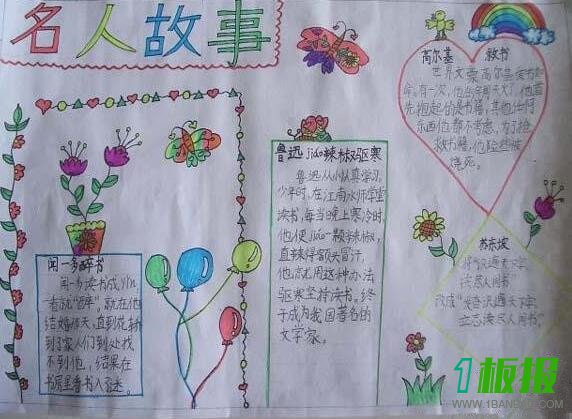 名人故事
高尔基 救书
世界文豪高尔基爱书如
命。有一次，他的房间失火了，他首
先抱起的是书籍，其他任何
东西他都不考虑。为了抢
救书籍，他险些被
烧死。
鲁迅jiáo辣椒驱寒
鲁迅从小认真学习。
少年时，在江南水师学堂
读书，每当晚上寒冷时，
他便jiáo一颗辣椒，
直辣得额头冒汗。
他就用这种办法
驱寒坚持读书。终
于成为我国著名的
文学家。
闻一多醉书
闻一多读书成yǐn，
一看就"醉"，就在他
结婚那天，直到花轿
到了家，人们到处找
不到他，结果在
书房里看书入了迷。
苏东坡
将"识遍天下字，
读尽人间书"
改成"发奋识遍天下字，
立志读尽人间书"。
1板报
WWW.1BANBAO.COM